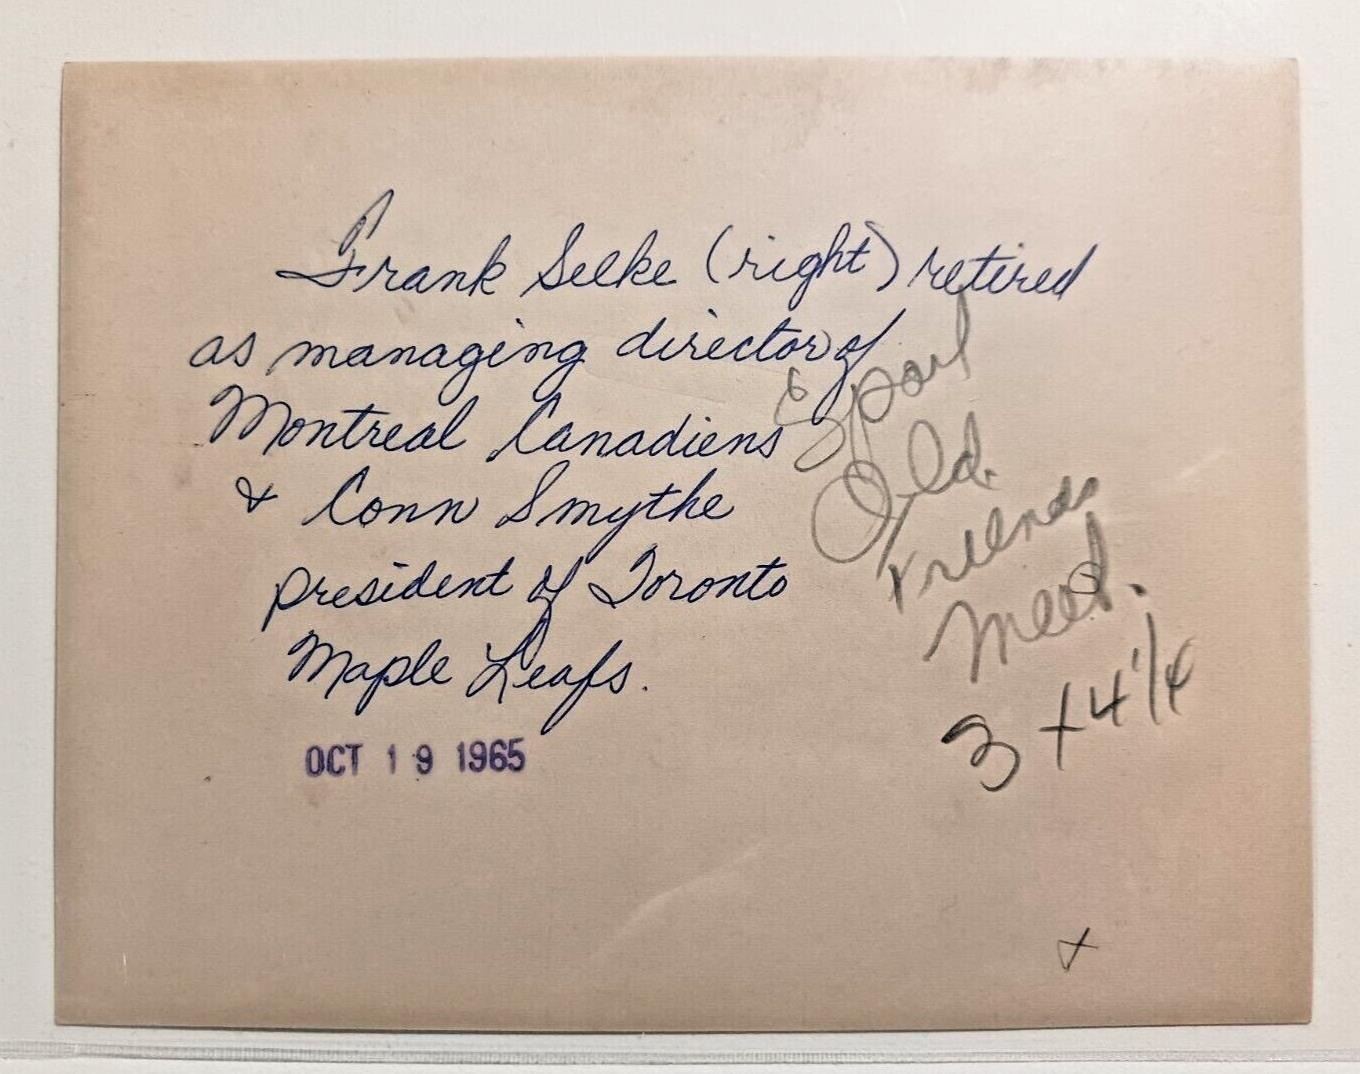 Frank Selke (right) retired
as managing director of
Montreal Canadiens
& Conn Smythe
president of Toronto
Maple Leafs.
OCT 19 1965
Sport
Old.
Friends
Meet.
3 x 4 1/4
x